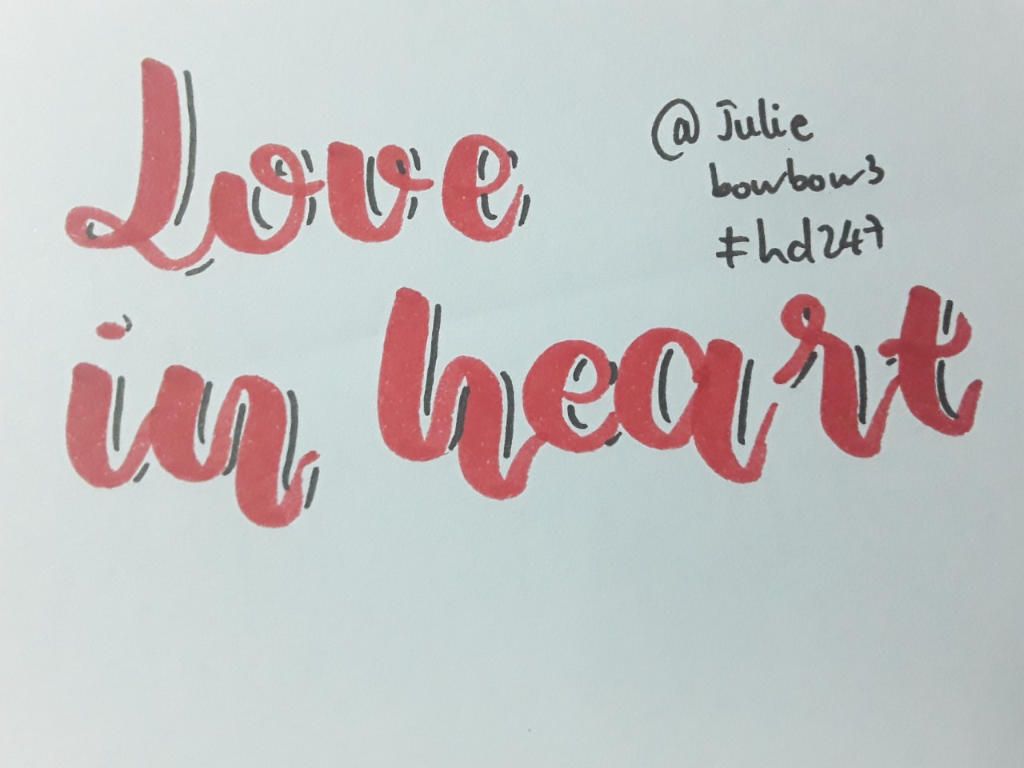 Love
in heart
@Julie
bowbow3
#hd247